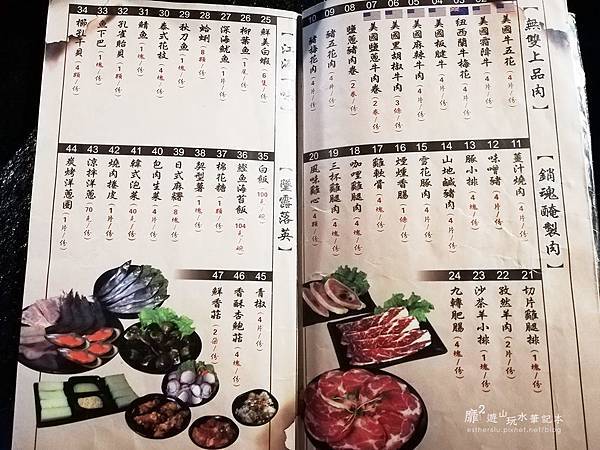 【無雙上品肉】
01 美國牛五花（4片/份）
02 美國霜降牛（4片/份）
03 紐西蘭牛梅花（4片/份）
04 美國板腱牛（4片/份）
05 美國麻辣牛肉（4片/份）
06 美國黑胡椒牛肉（3條/份）
07 美國鹽蔥牛肉卷（2卷/份）
08 鹽蔥豬肉卷（2卷/份）
09 豬五花肉（4片/份）
10 豬梅花肉（4片/份）
【銷魂醃製肉】
11 薑汁燒肉（4片/份）
12 味噌豬（4片/份）
13 豚小排（4片/份）
14 山地鹹豬肉（4片/份）
15 雪花豚肉（4片/份）
16 煙燻香腸（1條/份）
17 雞軟骨（4塊/份）
18 咖哩雞腿肉（4塊/份）
19 三杯雞腿肉（4塊/份）
20 風味雞心（4顆/份）
21 切片雞腿排（1塊/份）
22 孜然羊肉（2片/份）
23 沙茶羊小排（1塊/份）
24 九轉肥腸（4塊/份）
25 鮮美白蝦（6隻/份）
26 柳葉魚（1尾/份）
27 深海魷魚（1塊/份）
28 蛤蜊（8顆/份）
29 秋刀魚（1塊/份）
30 泰式花枝（4塊/份）
31 鯖魚（1塊/份）
32 孔雀貽貝（1顆/份）
33 魚下巴（1塊/份）
34
【墜露落英】
35 白飯100元/碗
36 鰹魚海苔飯104元/碗
37 棉花糖（1顆/份）
38 契型薯（1塊/份）
39 日式麻糬（8塊/份）
40 包肉生菜（4片/份）
41 韓式泡菜（40元/份）
42 燒肉捲皮（1片/份）
43 涼拌洋蔥（70元/份）
44 炭烤洋蔥圈（4片/份）
45 青椒（4片/份）
46 香酥杏鮑菇（4塊/份）
47 鮮香菇（2朵/份）
靡²遊山玩水筆記本
estherslu.pixnet.net/blog